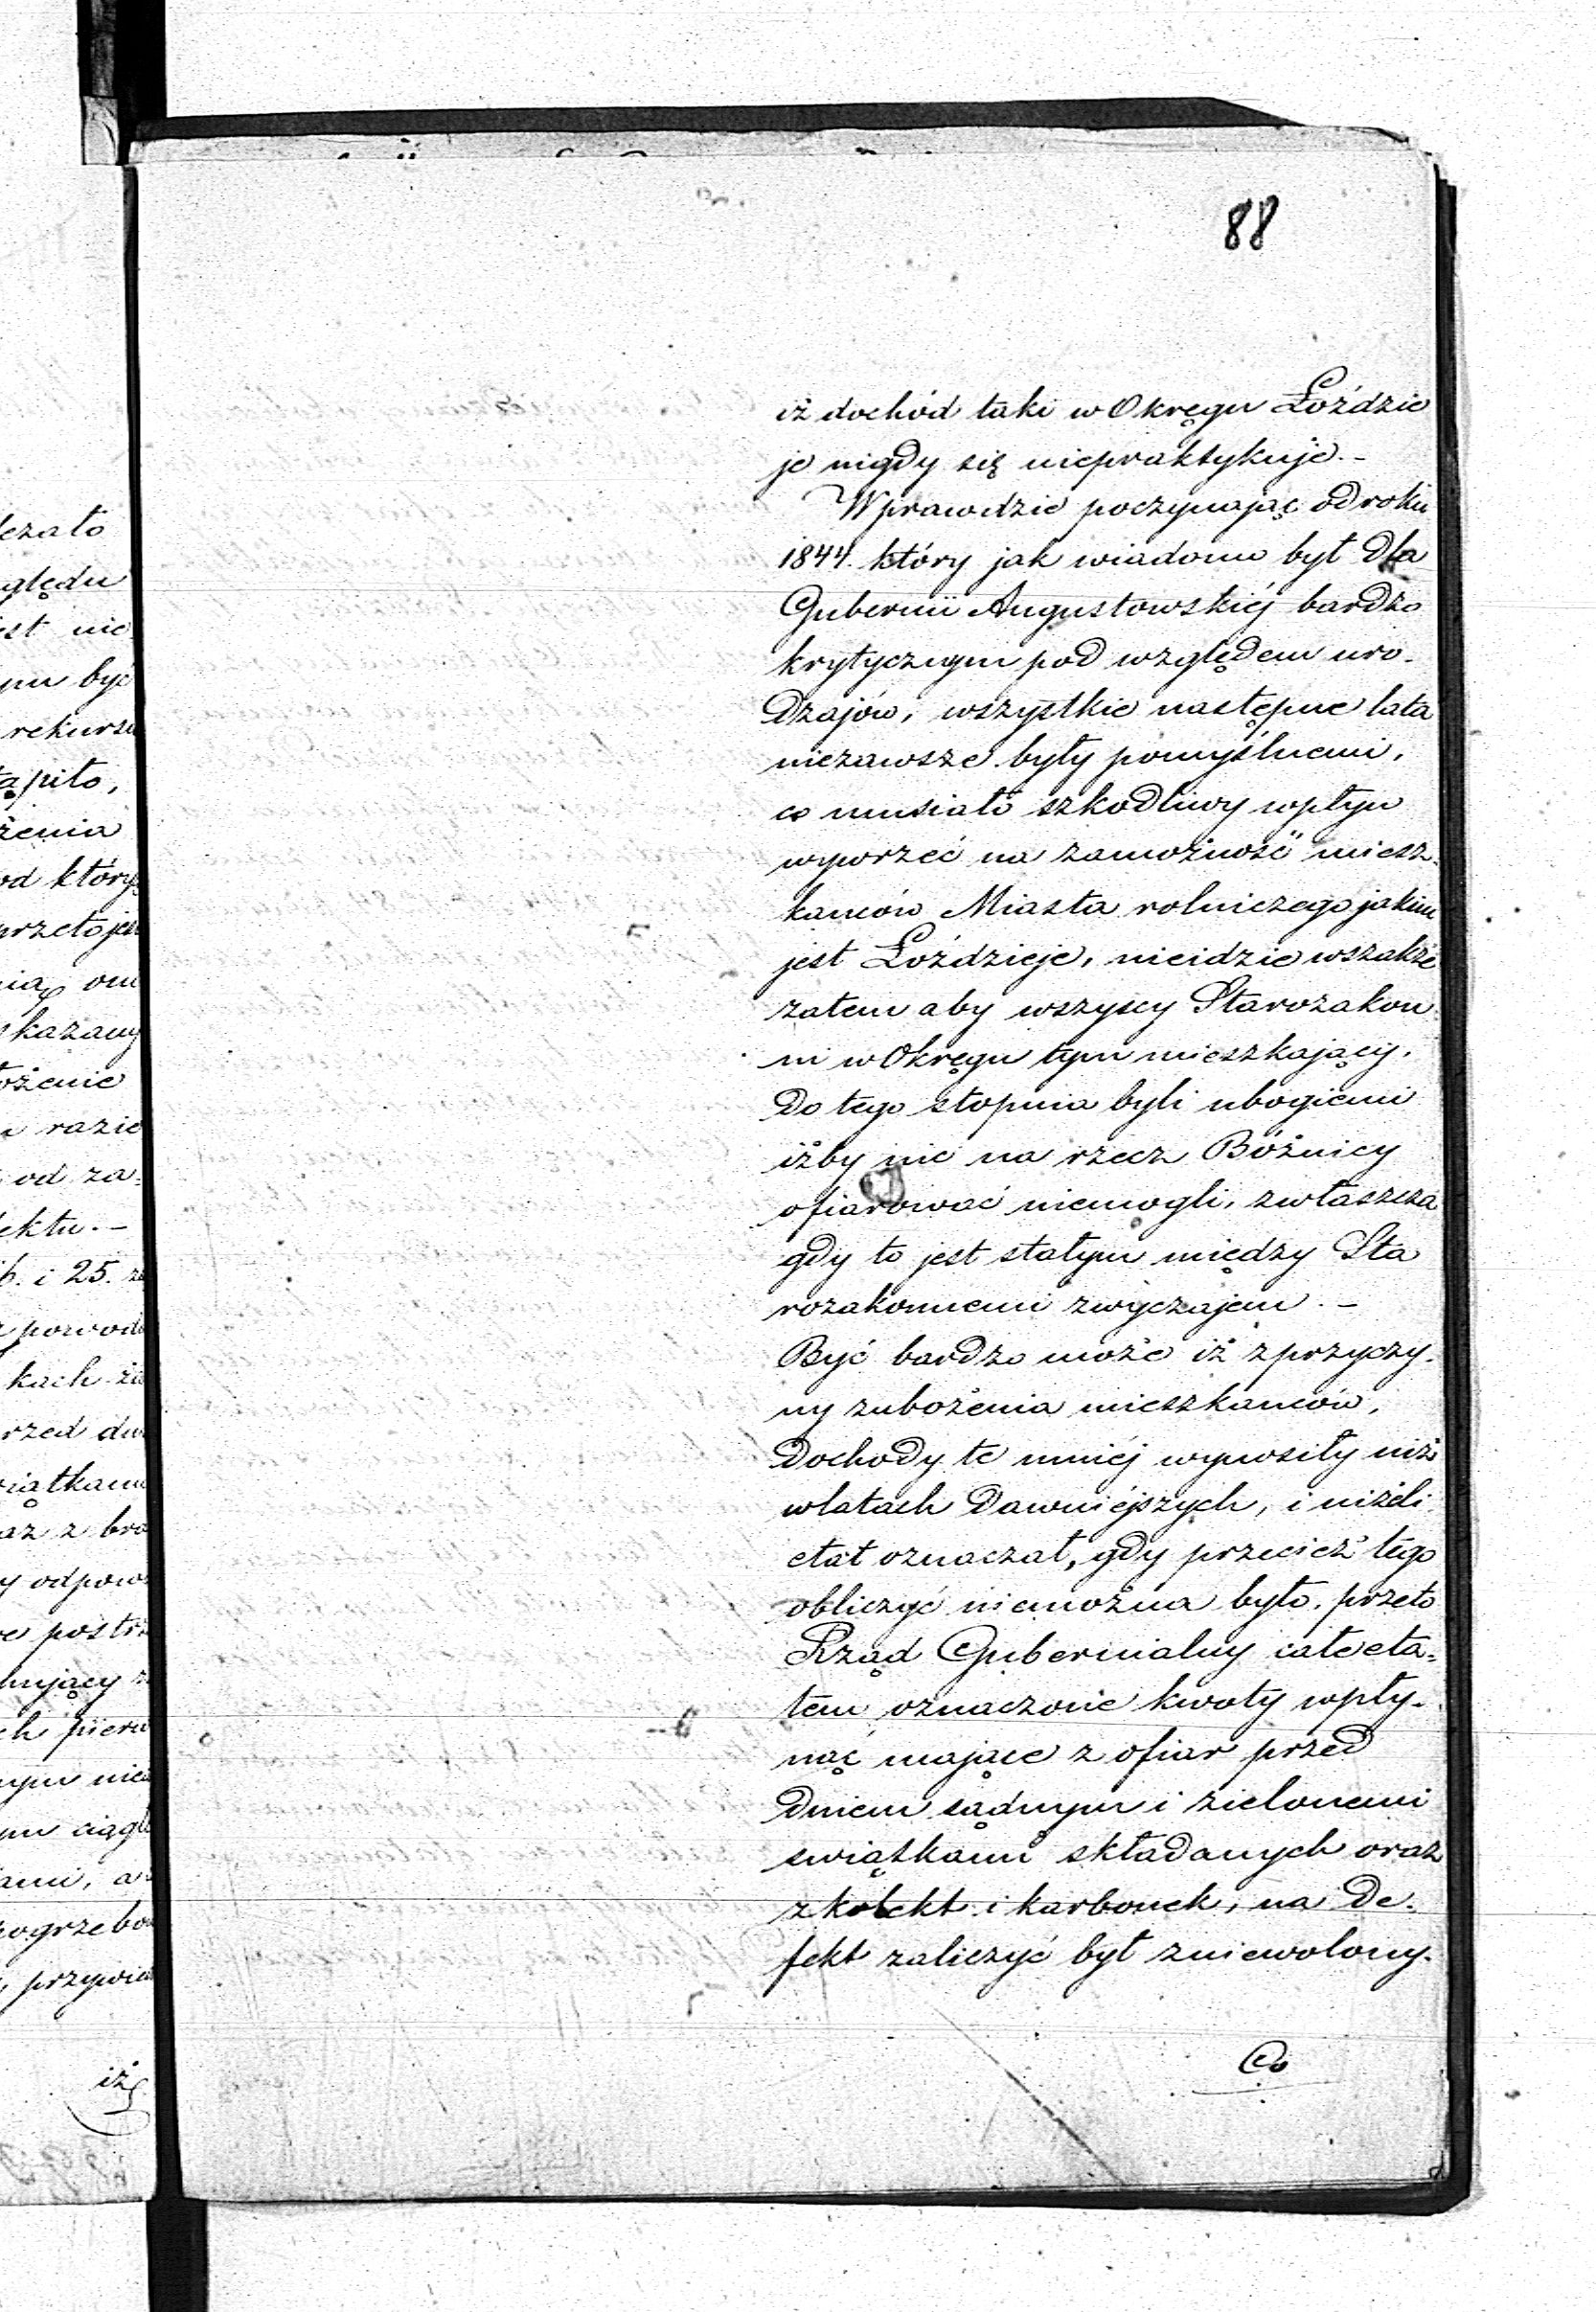 88
iż dochód taki w Okręgu Łoździe
je nigdy się niepraktykuje.-
Wprawdzie poczynając od roku
1844. który jak wiadomo był dla
Gubernii Augustowskiéj bardzo
krytycznym pod względem uro-
dzajów, wszystkie następne lata
niezawsze były pomyślnemi,
co musiało szkodliwy wpływ
wywrzeć na zamożność miesz-
kańców Miasta rolniczego jakim
jest Łoździeje, nieidzie wszakże
zatem aby wszyscy Starozakon
ni w Okręgu tym mieszkający,
do tego stopnia byli ubogiemi
iżby nic na rzecz Bóżnicy
ofiarować niemogli, zwłaszcza
gdy to jest stałym między Sta
rozakonnemi zwyczajem.-
Być bardzo może iż z przyczy-
ny zubożenia mieszkańców,
dochody te mniéj wynosiły niż
w latach dawniéjszych, i niżeli
etat oznaczał, gdy przecież tego
obliczyć niemożna było, przeto
Rząd Gubernialny całe eta=
tem oznaczone kwoty wpły-
nąć mające z ofiar przed
dniem sądnym i zielonemi
swiątkami składanych oraz
z kolekt i karbonek, na de-
fekt zaliczyć był zniewolony.
Co
czało
ględu
est nie
ym być
rekursu
ąpiło,
żenia
od który
przeto jes
nią om
skazany
ożenie
razie
od za=
ektu.-
i 25.
powod
kach
rzed
wiątkami
az z
y odpow
postr
mujący
ch pierw
nym
ym ciągł
ami, a
pogrzebow
przywie
iż